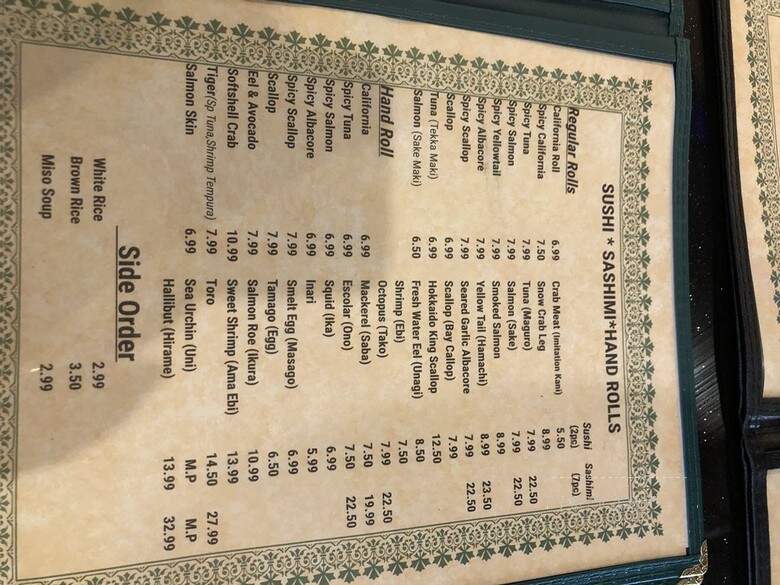 SUSHI * SASHIMI*HAND ROLLS
Regular Rolls
California Roll 6.99
Spicy California 7.50
Spicy Tuna 7.99
Spicy Salmon 7.99
Spicy Yellowtail 7.99
Spicy Albacore 7.99
Spicy Scallop 7.99
Scallop 6.99
Tuna (Tekka Maki) 6.99
Salmon (Sake Maki) 6.50
Hand Roll
California 6.99
Spicy Tuna 6.99
Spicy Salmon 6.99
Spicy Albacore 6.99
Spicy Scallop 7.99
Scallop 7.99
Eel & Avocado 7.99
Softshell Crab 10.99
Tiger(Sp Tuna,Shrimp Tempura) 7.99
Salmon Skin 6.99
Sushi Sashimi
(2pc) (7pc)
Crab Meat (Imitation Kani) 5.50
Snow Crab Leg 8.99
Tuna (Maguro) 7.99 22.50
Salmon (Sake) 7.99 22.50
Smoked Salmon 8.99
Yellow Tail (Hamachi) 8.99 23.50
Seared Garlic Albacore 7.99 22.50
Scallop (Bay Callop) 7.99
Hokkaido King Scallop 12.50
Fresh Water Eel (Unagi) 8.50
Shrimp (Ebi) 7.50
Octopus (Tako) 7.99 22.50
Mackerel (Saba) 7.50 19.99
Escolar (Ono) 7.50 22.50
Squid (Ika) 6.99
Inari 5.99
Smelt Egg (Masago) 6.99
Tamago (Egg) 6.50
Salmon Roe (Ikura) 10.99
Sweet Shrimp (Ama Ebi) 13.99
Toro 14.50 27.99
Sea Urchin (Uni) M.P M.P
Hallibut (Hirame) 13.99 32.99
Side Order
White Rice 2.99
Brown Rice 3.50
Miso Soup 2.99